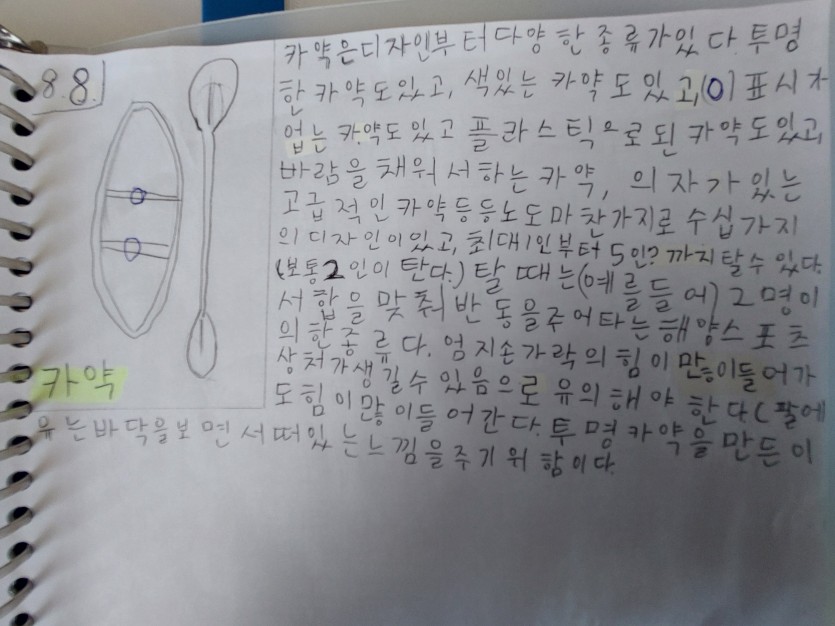 8.8.
카약은디자인부터다양한종류가있다.투명
한 카약도있고, 색있는 카약도있고,(O)표시가
없는 카약도있고 플라스틱으로된 카약도있고,
바람을 채워서하는 카약, 의자가 있는
고급적인 카약등등노도마찬가지로 수십가지
의디자인이있고, 최대1인부터 5인?까지탈수있다.
(보통2인이 탄다.) 탈 때는(예를들어) 2명이
서합을 맞춰 반동을주어타는해양스포츠
의한종류다. 엄지손가락의힘이많이들어가
상처가생길수있음으로유의해야한다.(팔에
도힘이많이들어간다. 투명카약을만든이
유는바닥을보면서떠있는느낌을주기위함이다.
카약